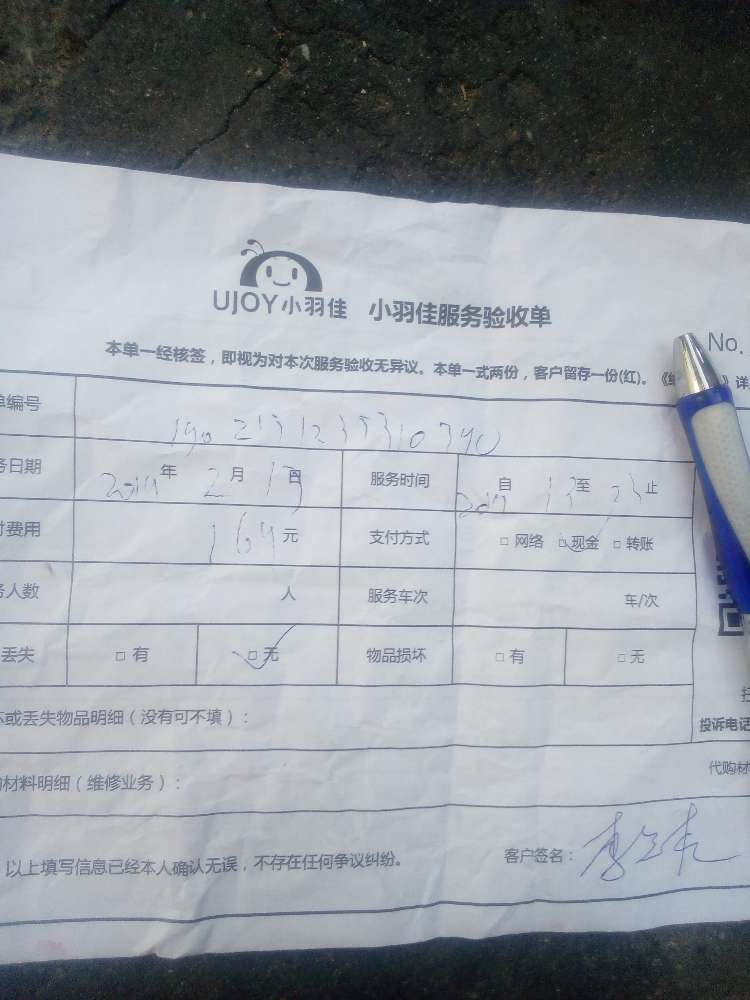 UJOY小羽佳 小羽佳服务验收单
No.
本单一经核签，即视为对本次服务验收无异议。本单一式两份，客户留存一份(红)。《 》详
单编号
务日期 年 2月 日 服务时间 自 至 止
付费用 164元 支付方式 □ 网络 □ 现金 □ 转账
务人数 人 服务车次 车/次
丢失 □ 有 □ 无 物品损坏 □ 有 □ 无
坏或丢失物品明细（没有可不填）：
投诉电话
材料明细（维修业务）：
代购材
以上填写信息已经本人确认无误，不存在任何争议纠纷。 客户签名：